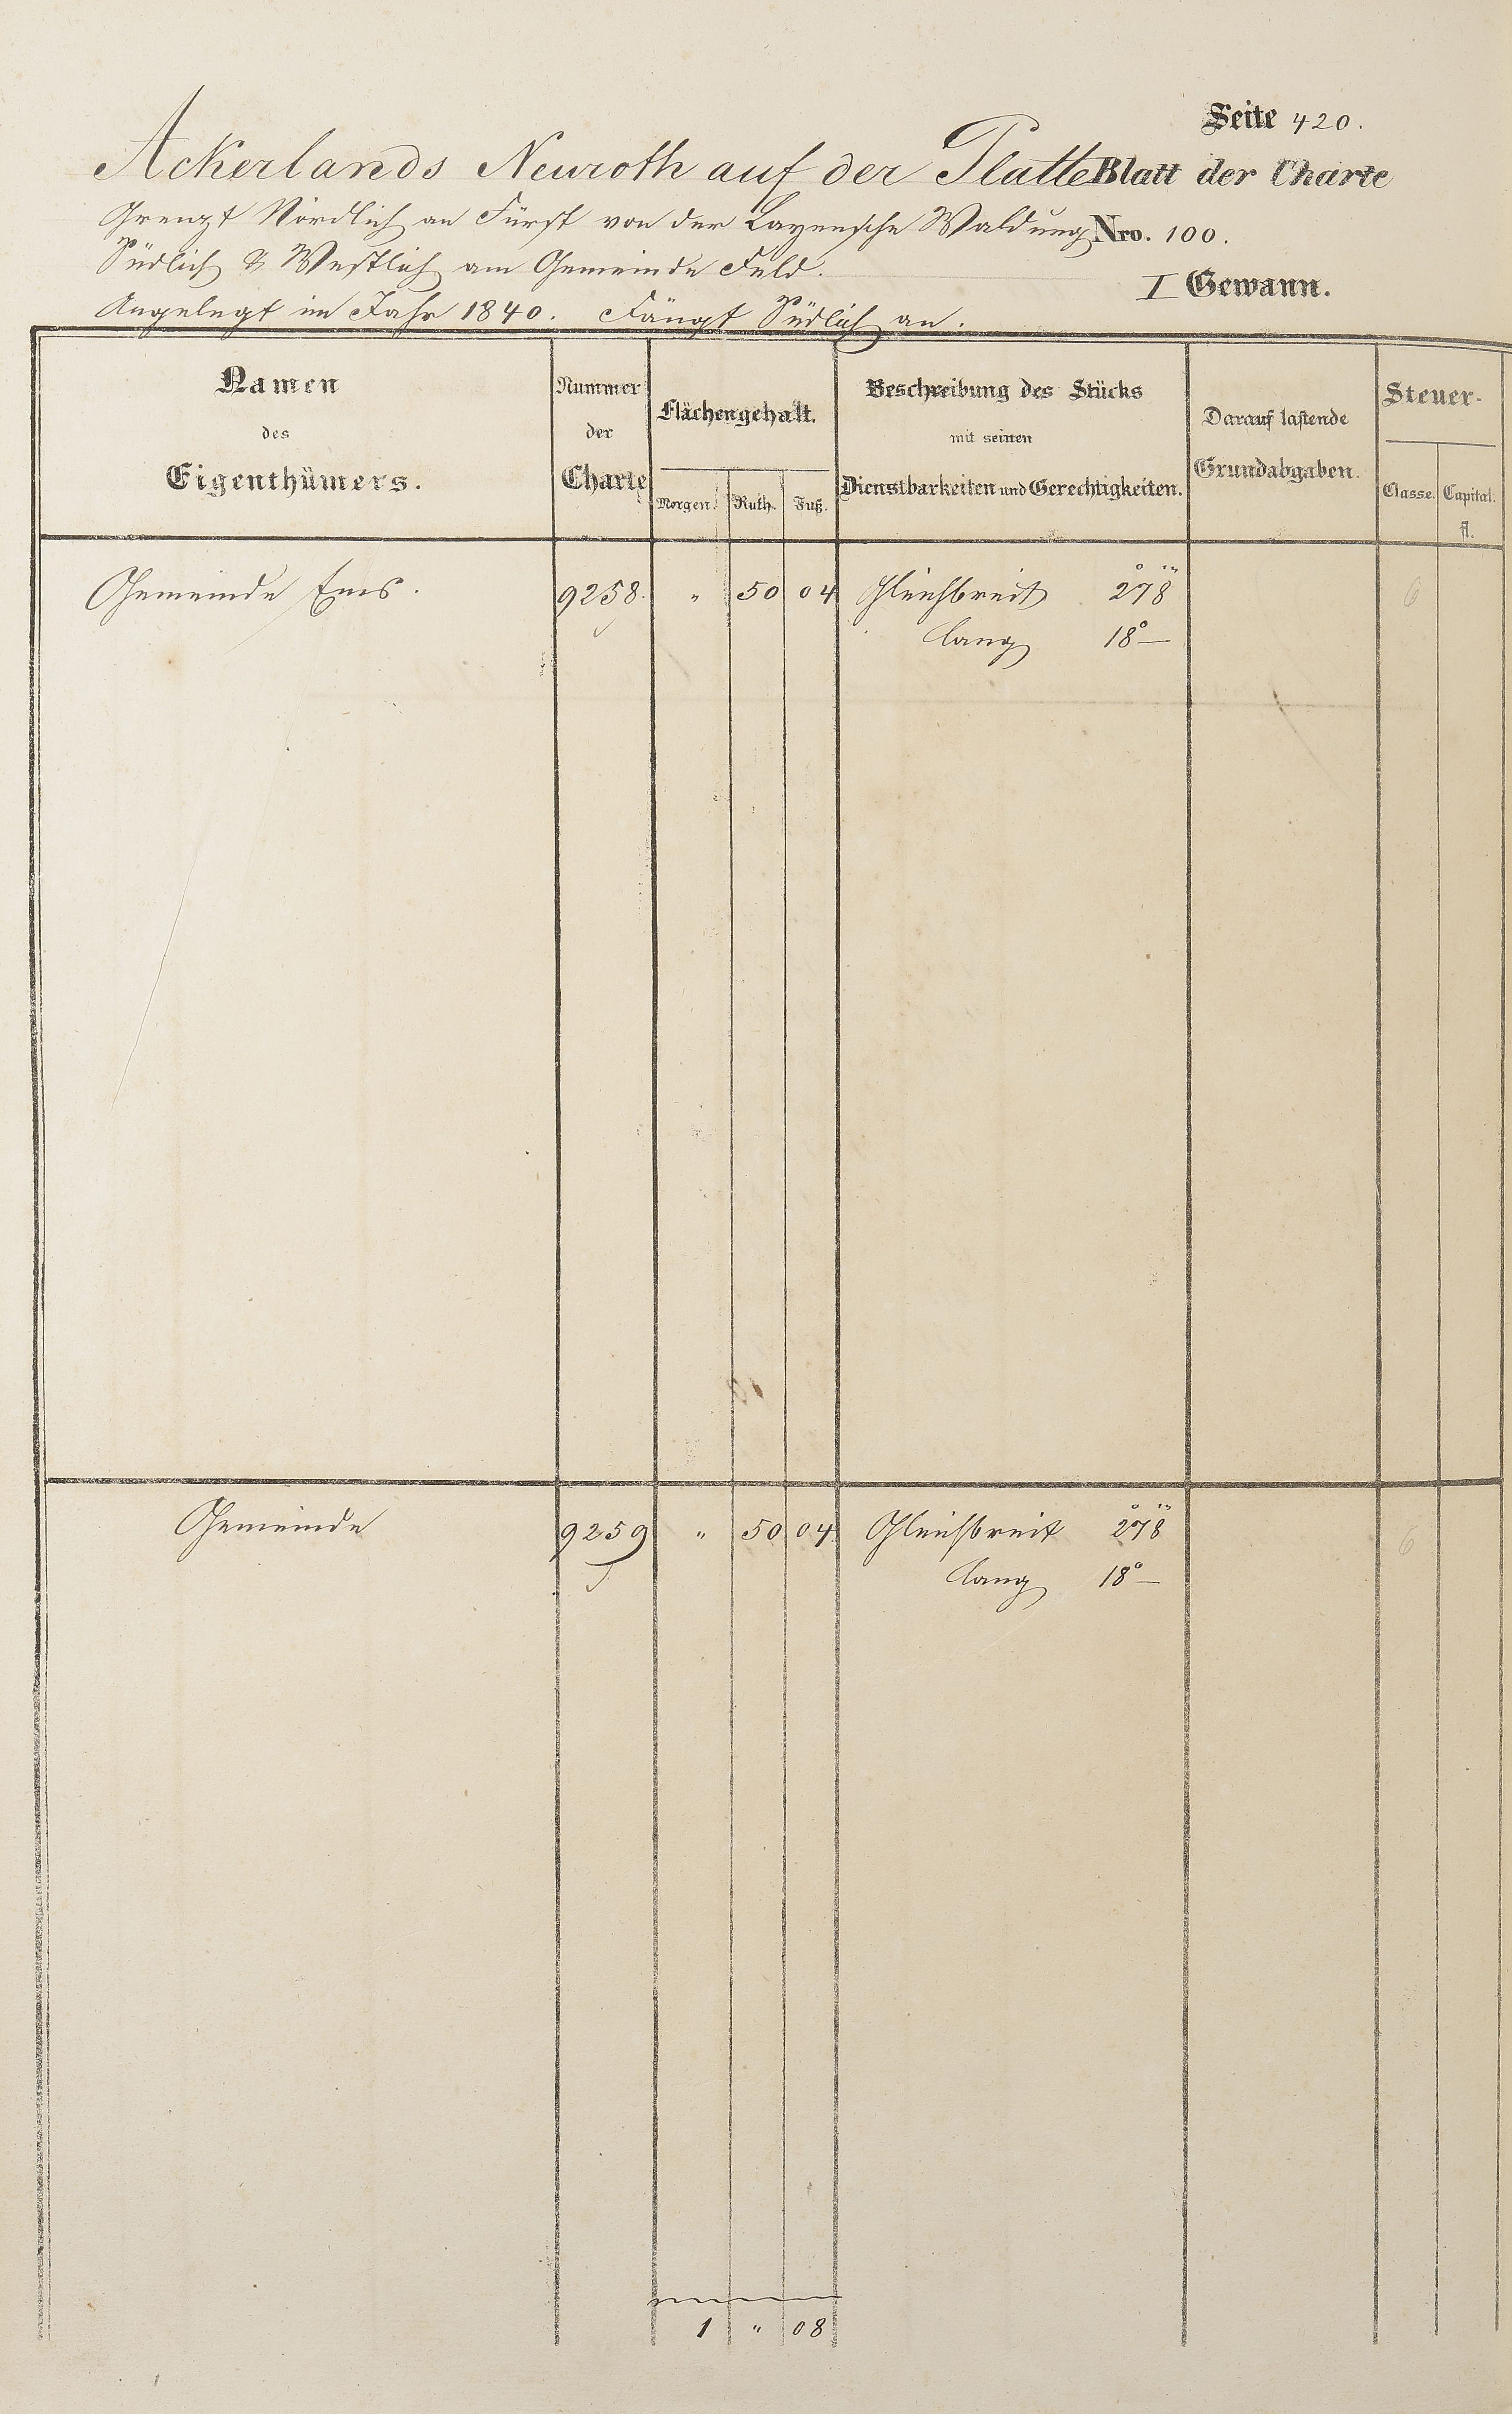 Seite 420.
Ackerlands Neuroth auf der Platte Blatt der Charte
Grenzt Nördlich an Fürst von der Layensche Waldung Nro. 100.
Südlich & Westlich am Gemeinde Feld.
I Gewann.
Angelegt im Jahr 1840. Fängt Südlich an.
Namen
des
Eigenthümers.
Nummer
der
Charte
Flächengehalt.
Morgen. Ruth. Fuß.
Beschreibung des Stücks
mit seinen
Dienstbarkeiten und Gerechtigkeiten.
Darauf lastende
Grundabgaben.
Steuer-
Classe. Capital.
fl.
Gemeinde Ems. 9258. " 50 04 Gleichbreit 2° 7' 8" 6
lang 18° —
Gemeinde 9259 " 50 04 Gleichbreit 2° 7' 8" 6
lang 18° —
1 " 08